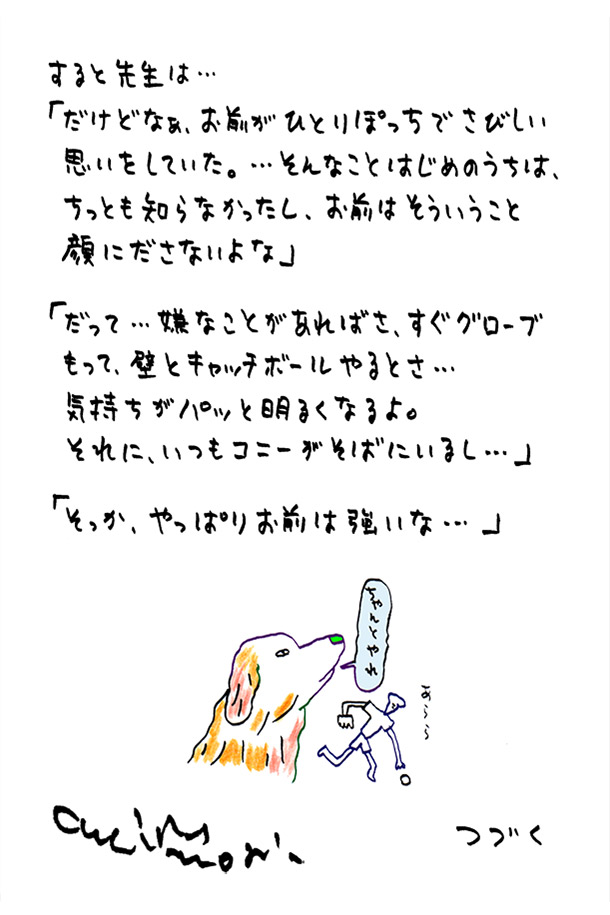 すると先生は…
「だけどなぁ、お前がひとりぼっちでさびしい
思いをしていた。…そんなことはじめのうちは、
ちっとも知らなかったし、お前はそういうこと
顔にださないよな」
「だって…嫌なことがあればさ、すぐグローブ
もって、壁とキャッチボールやるとさ…
気持ちがパッと明るくなるよ。
それに、いつもコニーがそばにいるし…」
「そっか、やっぱりお前は強いな…」
ちゃんとやれ
あらら
つづく